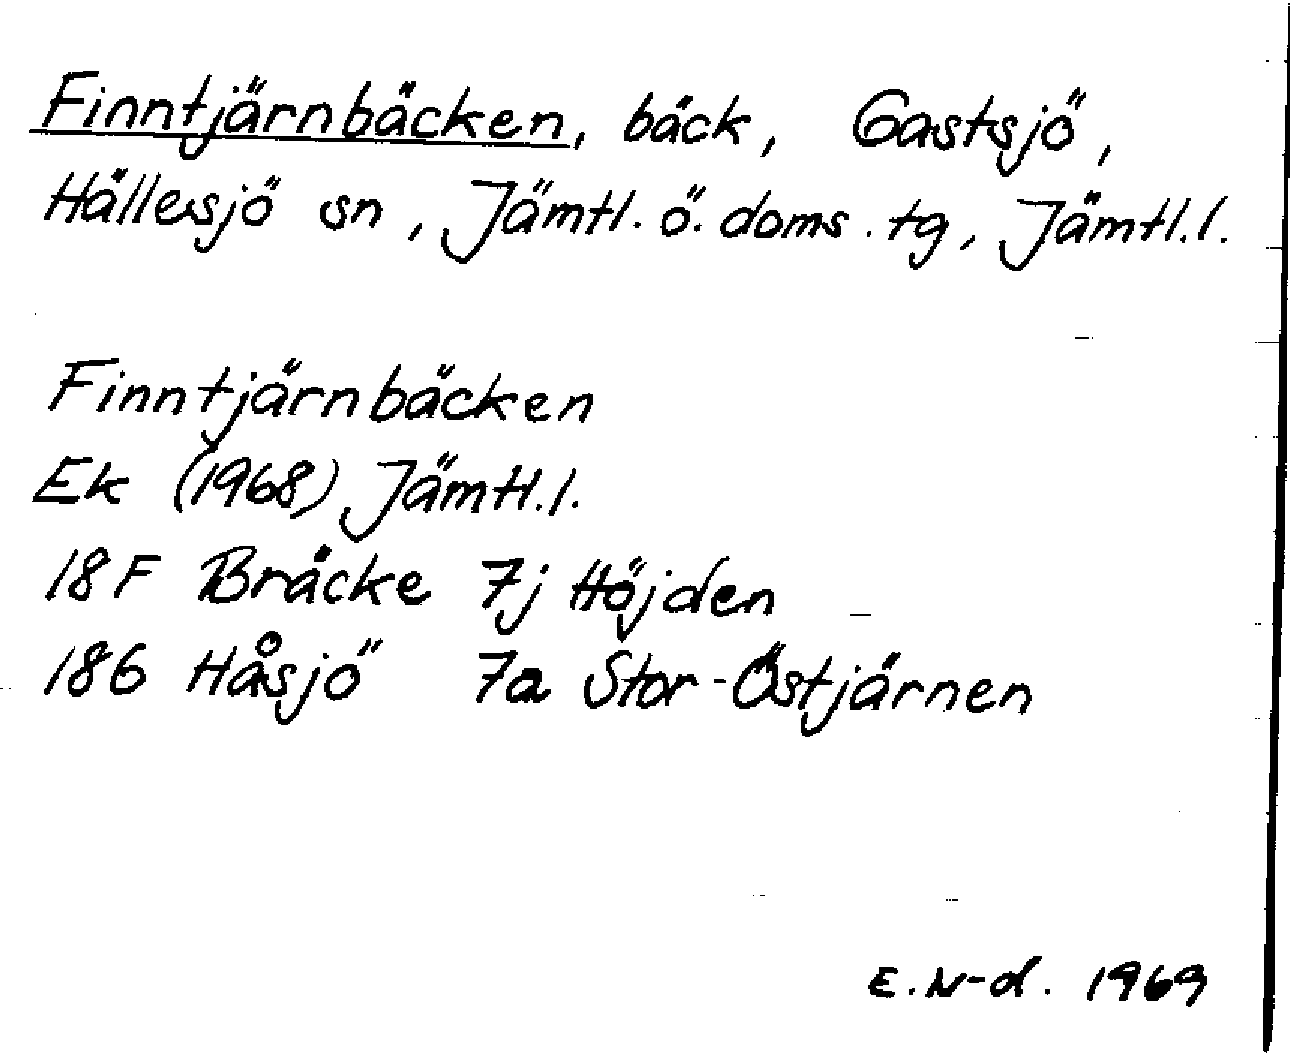 Finntjärnbäcken, bäck, Gastsjö,
Hällesjö sn, Jämtl. ö. doms. tg, Jämtl. l.
Finntjärnbäcken
Ek (1968) Jämtl. l.
18F Bräcke 7j Höjden
18G Håsjö 7a Stor-Östjärnen
E. N-d. 1969